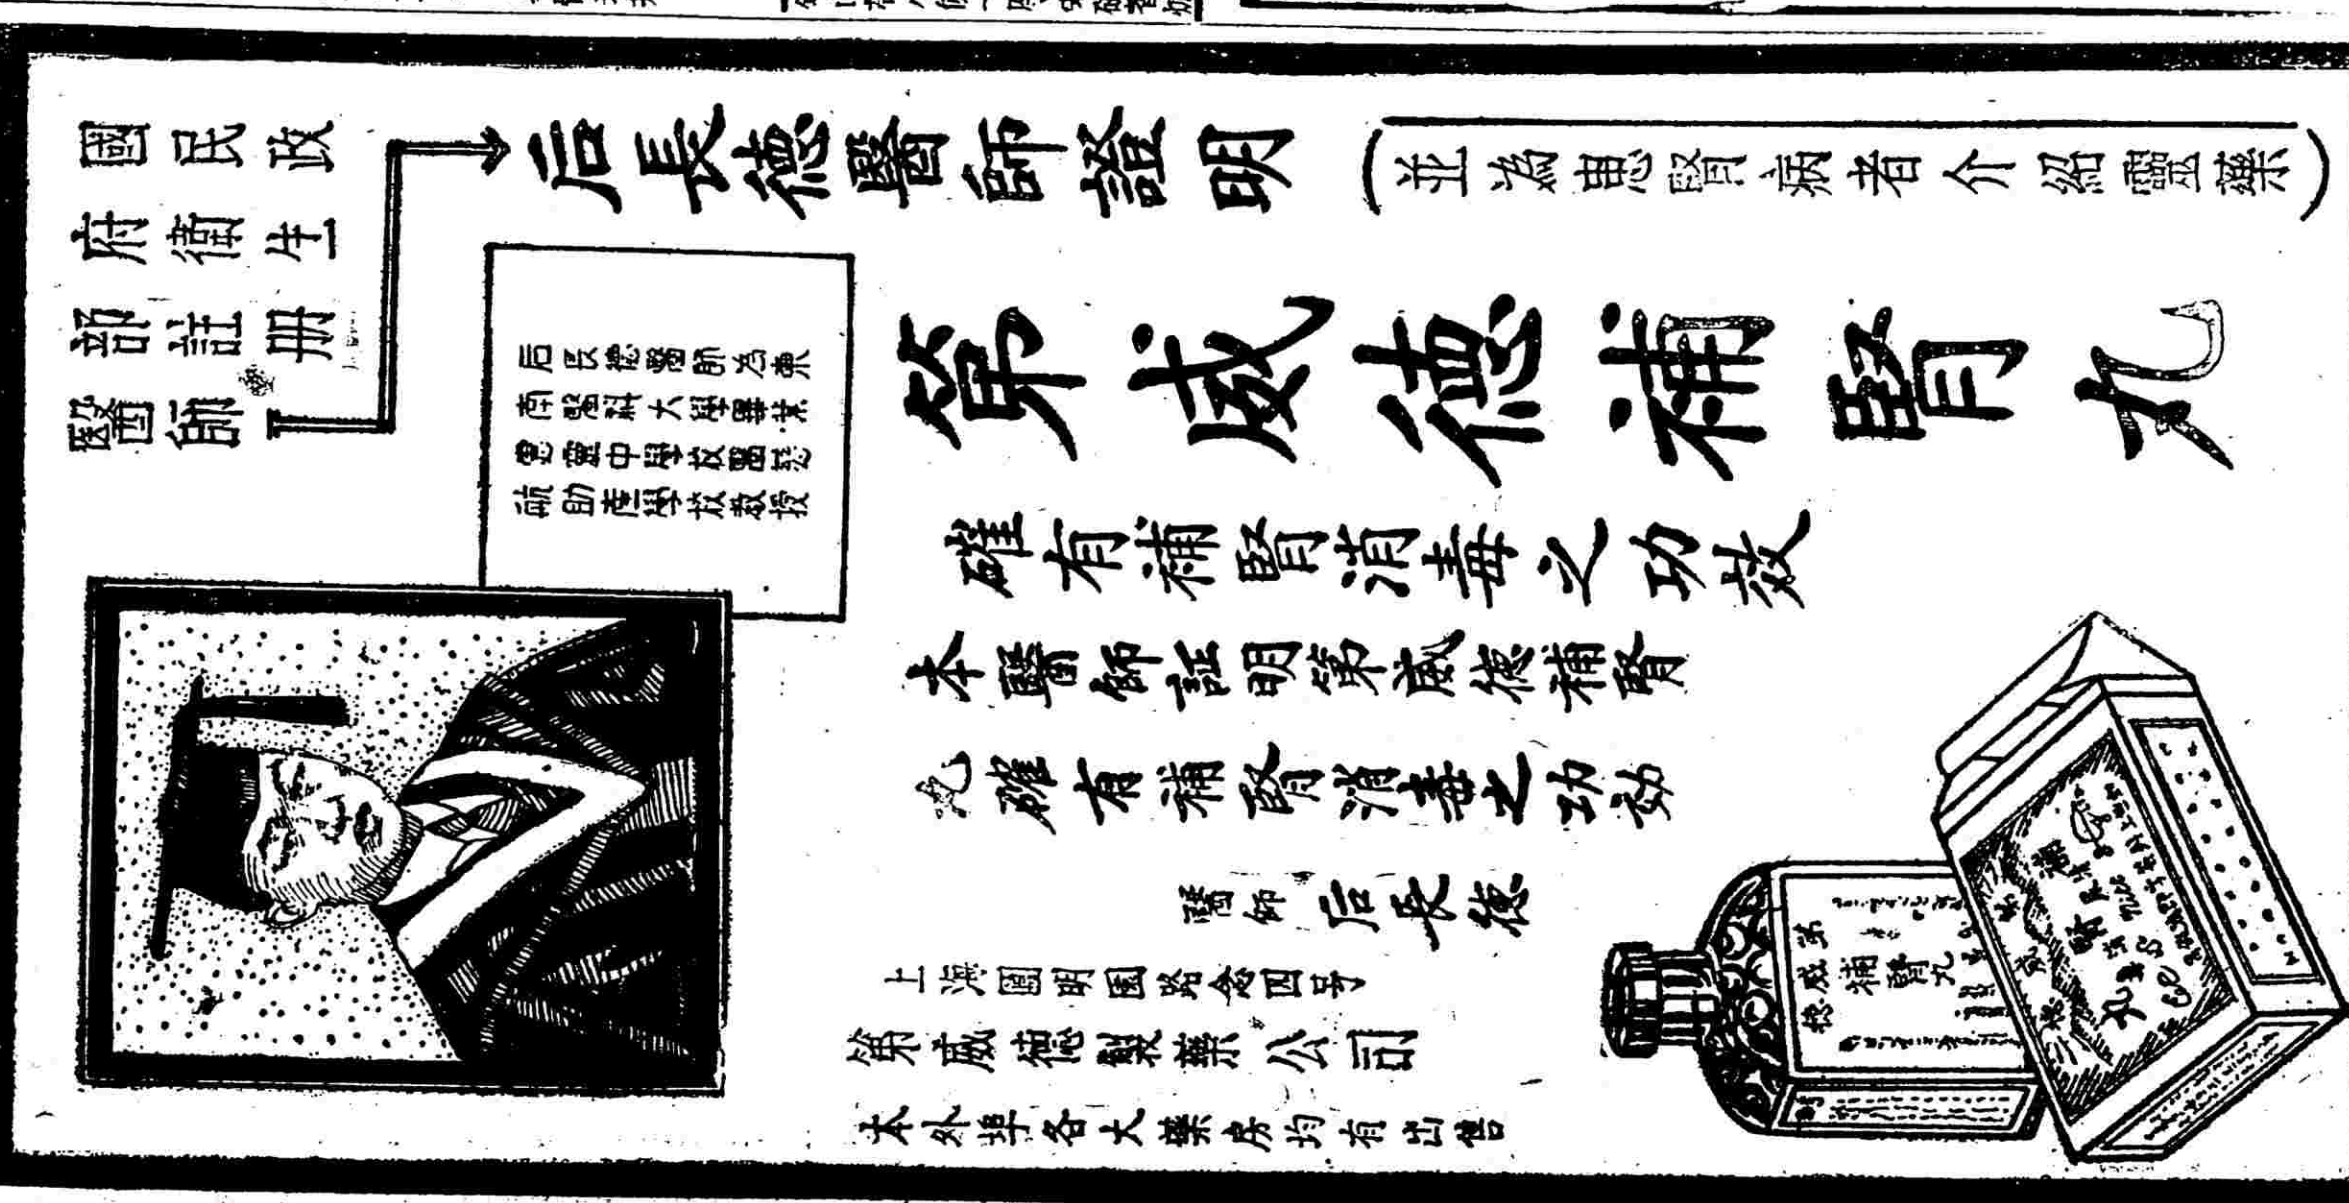 國民政
府衛生
部註册
醫師
后長德醫師證明
(並為患腎病者介紹靈藥)
后長德醫師為東
南醫科大學畢業
惠靈中學校醫惠
航助產學校教授
第威德補腎丸
確有補腎消毒之功效
本醫師証明第威德補腎
丸確有補腎消毒之功効
醫師 后長德
上海圓明园路念四号
第威德製藥公司
本外埠各大藥房均有出售
第威德
補腎丸
第威德
補腎丸